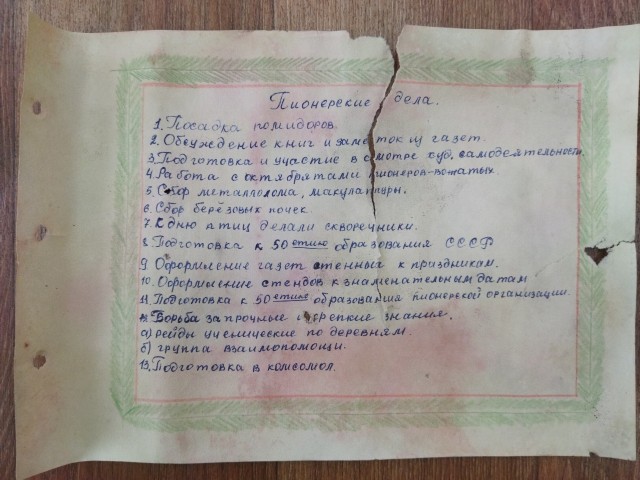 Пионерские дела.
1. Посадка помидоров.
2. Обсуждение книг и заметок из газет.
3. Подготовка и участие в смотре худ. самодеятельности.
4. Работа с октябрятами пионеров-вожатых.
5. Сбор металлолома, макулатуры.
6. Сбор берёзовых почек.
7. К дню птиц делали скворечники.
8. Подготовка к 50 етию образования СССР
9. Оформление газет стенных к праздникам.
10. Оформление стендов к знаменательным датам
11. Подготовка к 50 етию образования пионерской организации.
12. Борьба за прочные и крепкие знания.
а) рейды ученические по деревням.
б) группа взаимопомощи.
13. Подготовка в комсомол.